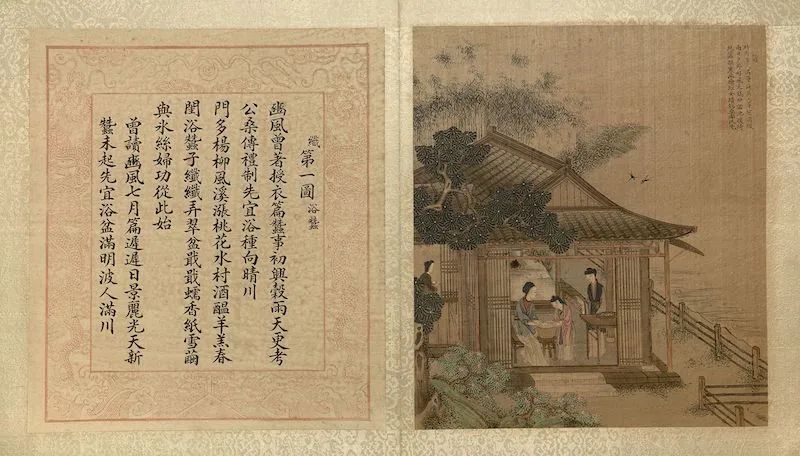 織第一圖浴蠶
豳風曾著授衣篇蠶事初興穀雨天更考
公桑傳禮制先宜浴種向晴川
門多楊柳風溪漲桃花水村酒醞羊羔春
閨浴蠶子纖纖弄翠盆戢戢蠕香紙雪繭
與氷絲婦功從此始
曾讀豳風七月篇遲遲日景麗光天新
蠶未起先宜浴盆滿明波人滿川